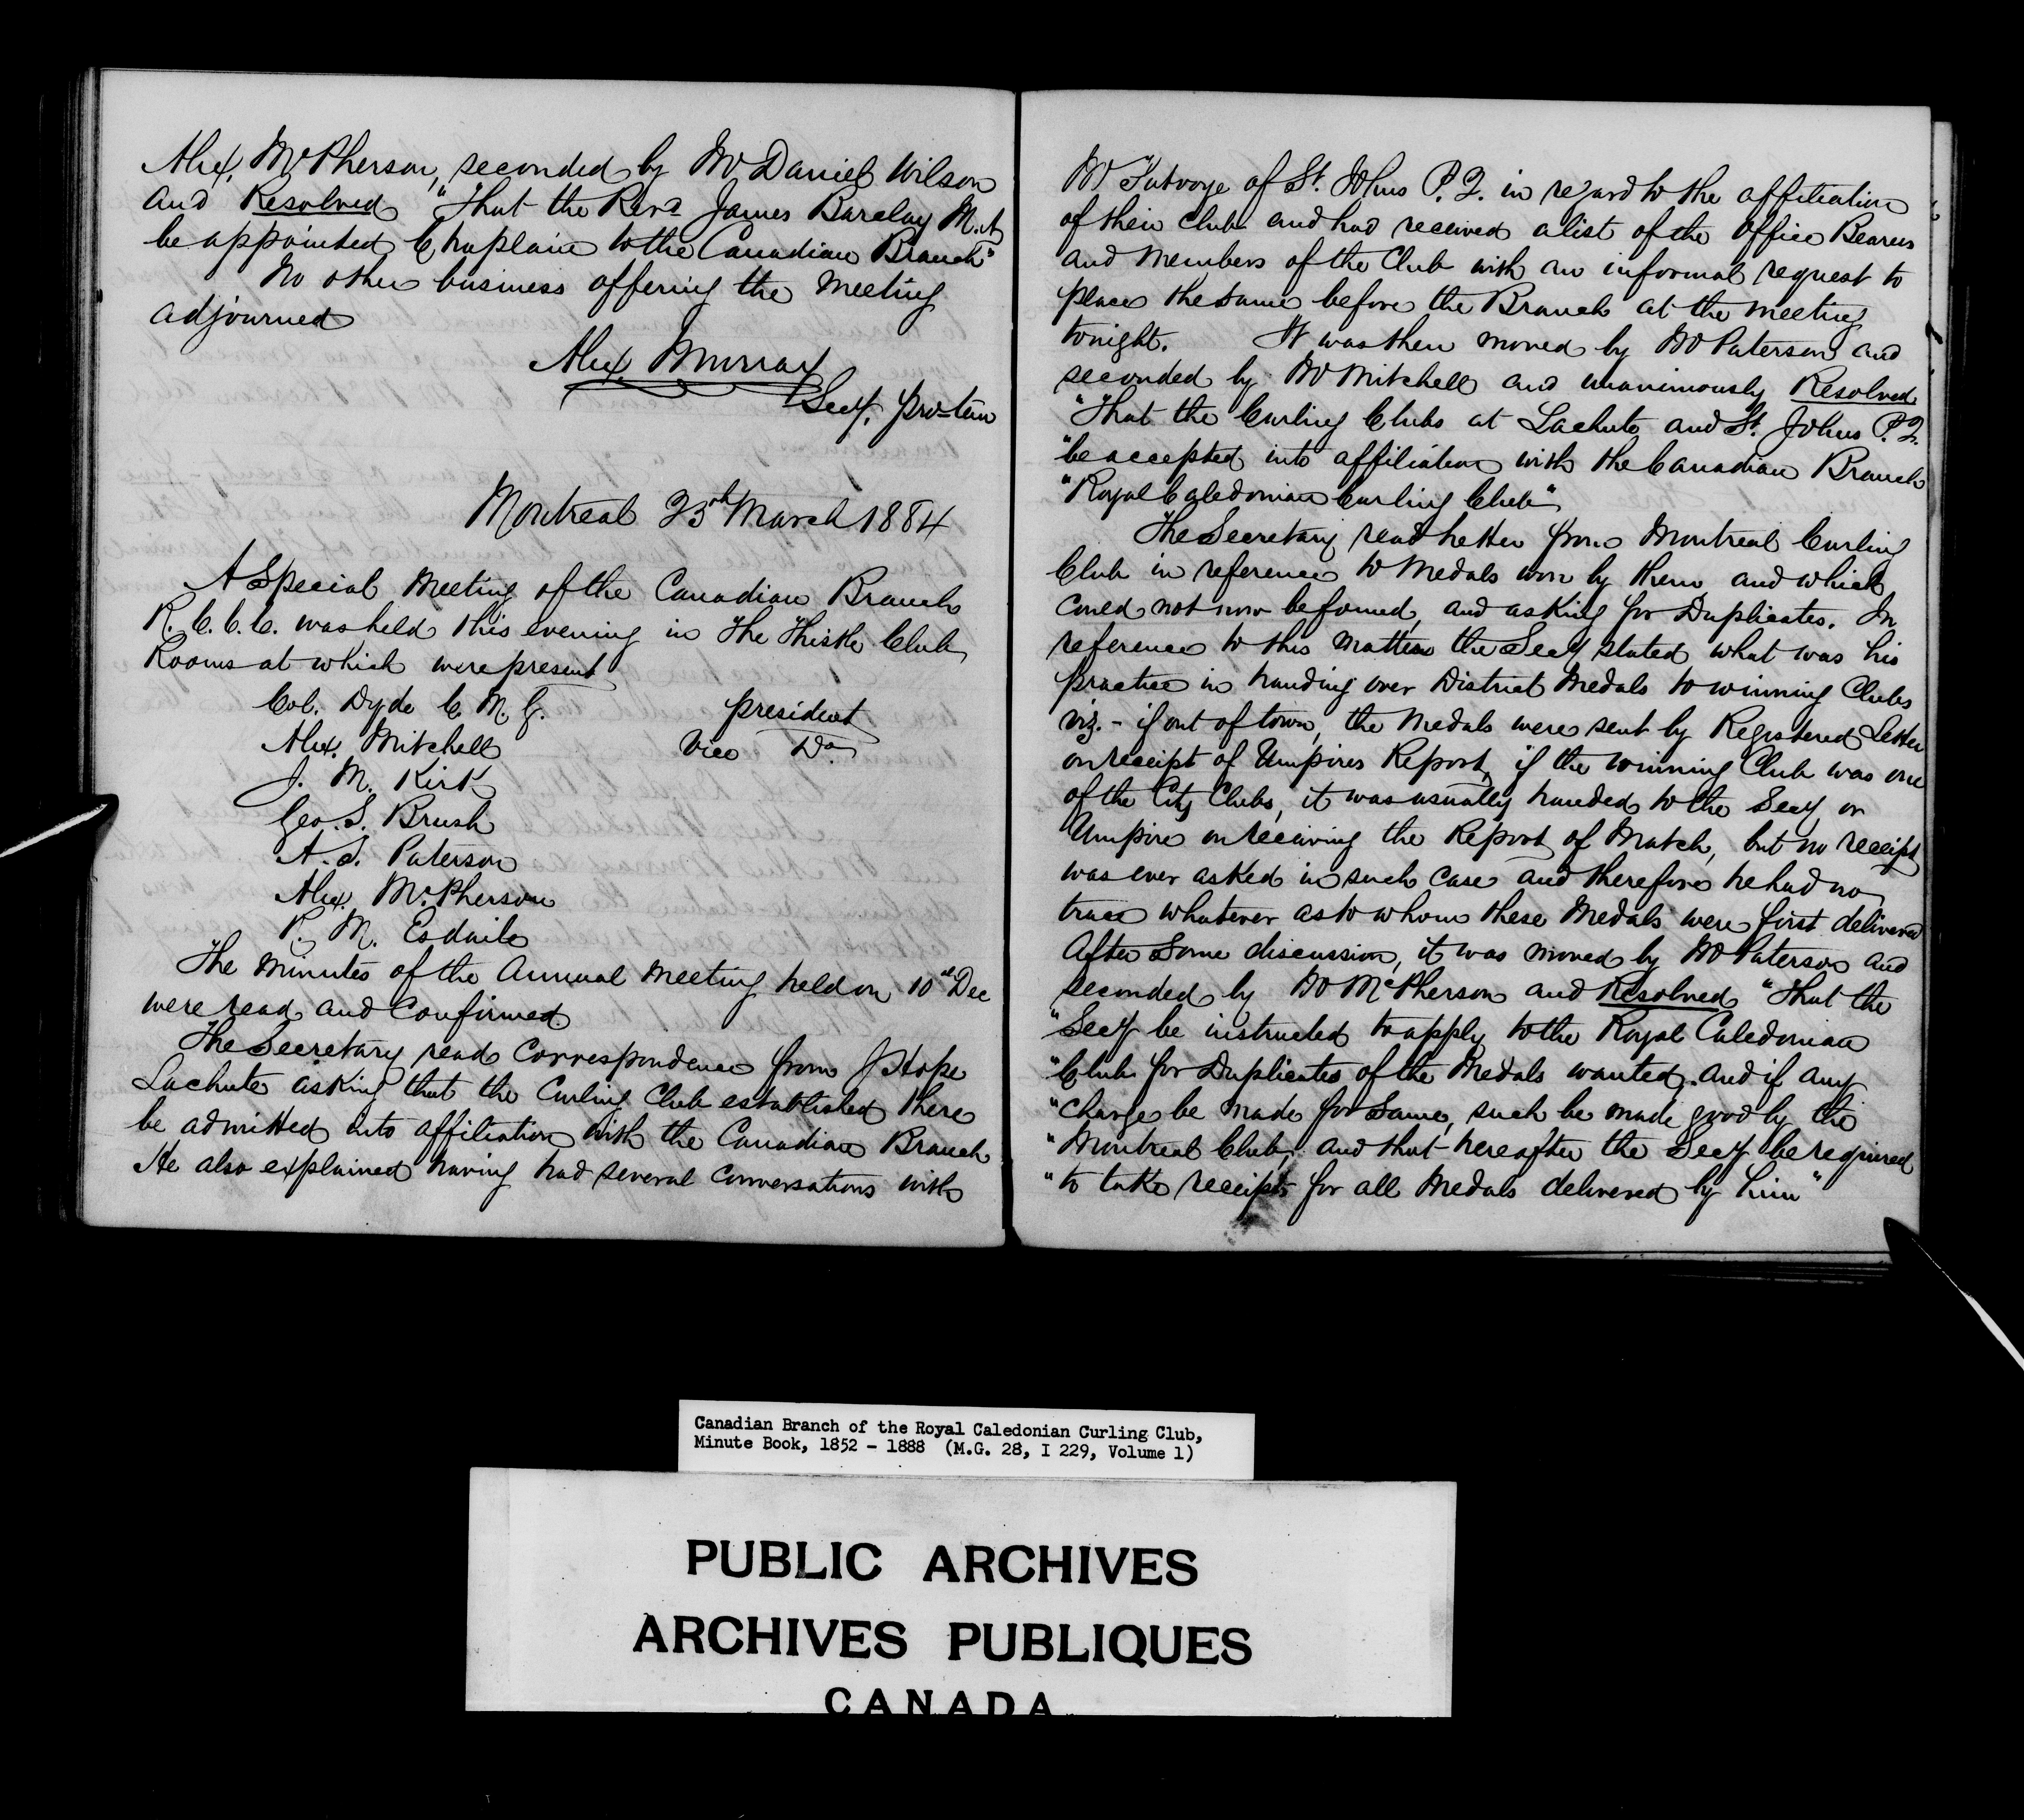 Alex. McPherson, seconded by Mr Daniel Wilson
and Resolved "That the Revd James Barclay M.A
be appointed Chaplain to the Canadian Branch"
No other business offering the Meeting
adjourned
Alex Murray
Secy. pro-tem
Montreal 25th March 1884
A Special Meeting of the Canadian Branch
R. C. C. C. was held this evening in The Thistle Club
Rooms at which were present
Col. Dyde C. M. G. president
Alex. Mitchell Vice Do
J. M. Kirk
Geo. S. Brush
A. T. Paterson
Alex. McPherson
R. M. Esdaile
The Minutes of the Annual Meeting held on 10th Dec
were read and Confirmed.
The Secretary read Correspondence from J Hope
Lachute asking that the Curling Club established there
be admitted into affiliation with the Canadian Branch
He also explained having had several Conversations with
Mr of St. Johns P.Q. in regard to the affiliation
of their Club and had received a list of the Office Bearers
and Members of the Club with an informal request to
place the same before the Branch at the meeting
tonight. It was then moved by Mr Paterson and
seconded by Mr Mitchell and unanimously Resolved
"That the Curling Clubs at Lachute and St. Johns P.Q.
"be accepted into affiliation with the Canadian Branch
"Royal Caledonian Curling Club"
The Secretary read Letter from Montreal Curling
Club in reference to Medals won by them and which
could not now be found, and asking for Duplicates. In
reference to this matter the Secy stated what was his
practice in handing over District Medals to winning Clubs
viz. - if out of town, the Medals were sent by Registered Letter
on receipt of Umpires Report, if the winning Club was one
of the City Clubs, it was usually handed to the Secy or
Umpire on receiving the Report of Match, but no receipt
was ever asked in such case and therefore he had no
trace whatever as to whom these Medals were first delivered
After some discussion, it was moved by Mr Paterson and
seconded by Mr McPherson and Resolved "That the
"Secy be instructed to apply to the Royal Caledonian
"Club for Duplicates of the Medals wanted. and if any
"charge be made for same, such be made good by the
"Montreal Club, and that hereafter the Secy be required
"to take receipts for all Medals delivered by him"
Canadian Branch of the Royal Caledonian Curling Club,
Minute Book, 1852 - 1888 (M.G. 28, I 229, Volume 1)
PUBLIC ARCHIVES
ARCHIVES PUBLIQUES
CANADA